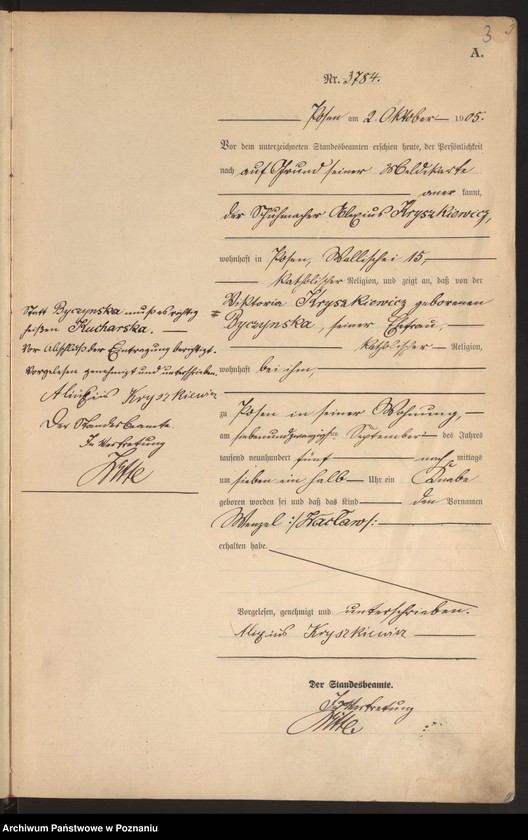 3
A.
Nr. 3784.
Posen am 2 Oktober 1905.
Vor dem unterzeichneten Standesbeamten erschien heute, der Persönlichkeit
nach auf Grund seiner Meldekarte
aner kannt,
der Schuhmacher Aloysius Kryszkiewicz,
wohnhaft in Posen, Wallischei 15,
katholischer Religion, und zeigt an, daß von der
Viktoria Kryszkiewicz geborenen
Byczynska, seiner Ehefrau,
katholischer Religion,
wohnhaft bei ihm,
zu Posen in seiner Wohnung,
am siebenundzwanzigsten September des Jahres
tausend neunhundert fünf nach mittags
um sieben ein halb Uhr ein Knabe
geboren worden sei und daß das Kind den Vornamen
Wenzel :/Wacław/:
erhalten habe.
Vorgelesen, genehmigt und unterschrieben.
Kryszkiewicz
Der Standesbeamte.
In Vertretung
Statt Byczynska muß es richtig
heißen Kucharska.
Vor Abschluß der Eintragung berichtigt.
Vorgelesen genehmigt und unterschrieben
Kryszkiewicz
Der Standesbeamte.
In Vertretung
Archiwum Państwowe w Poznaniu